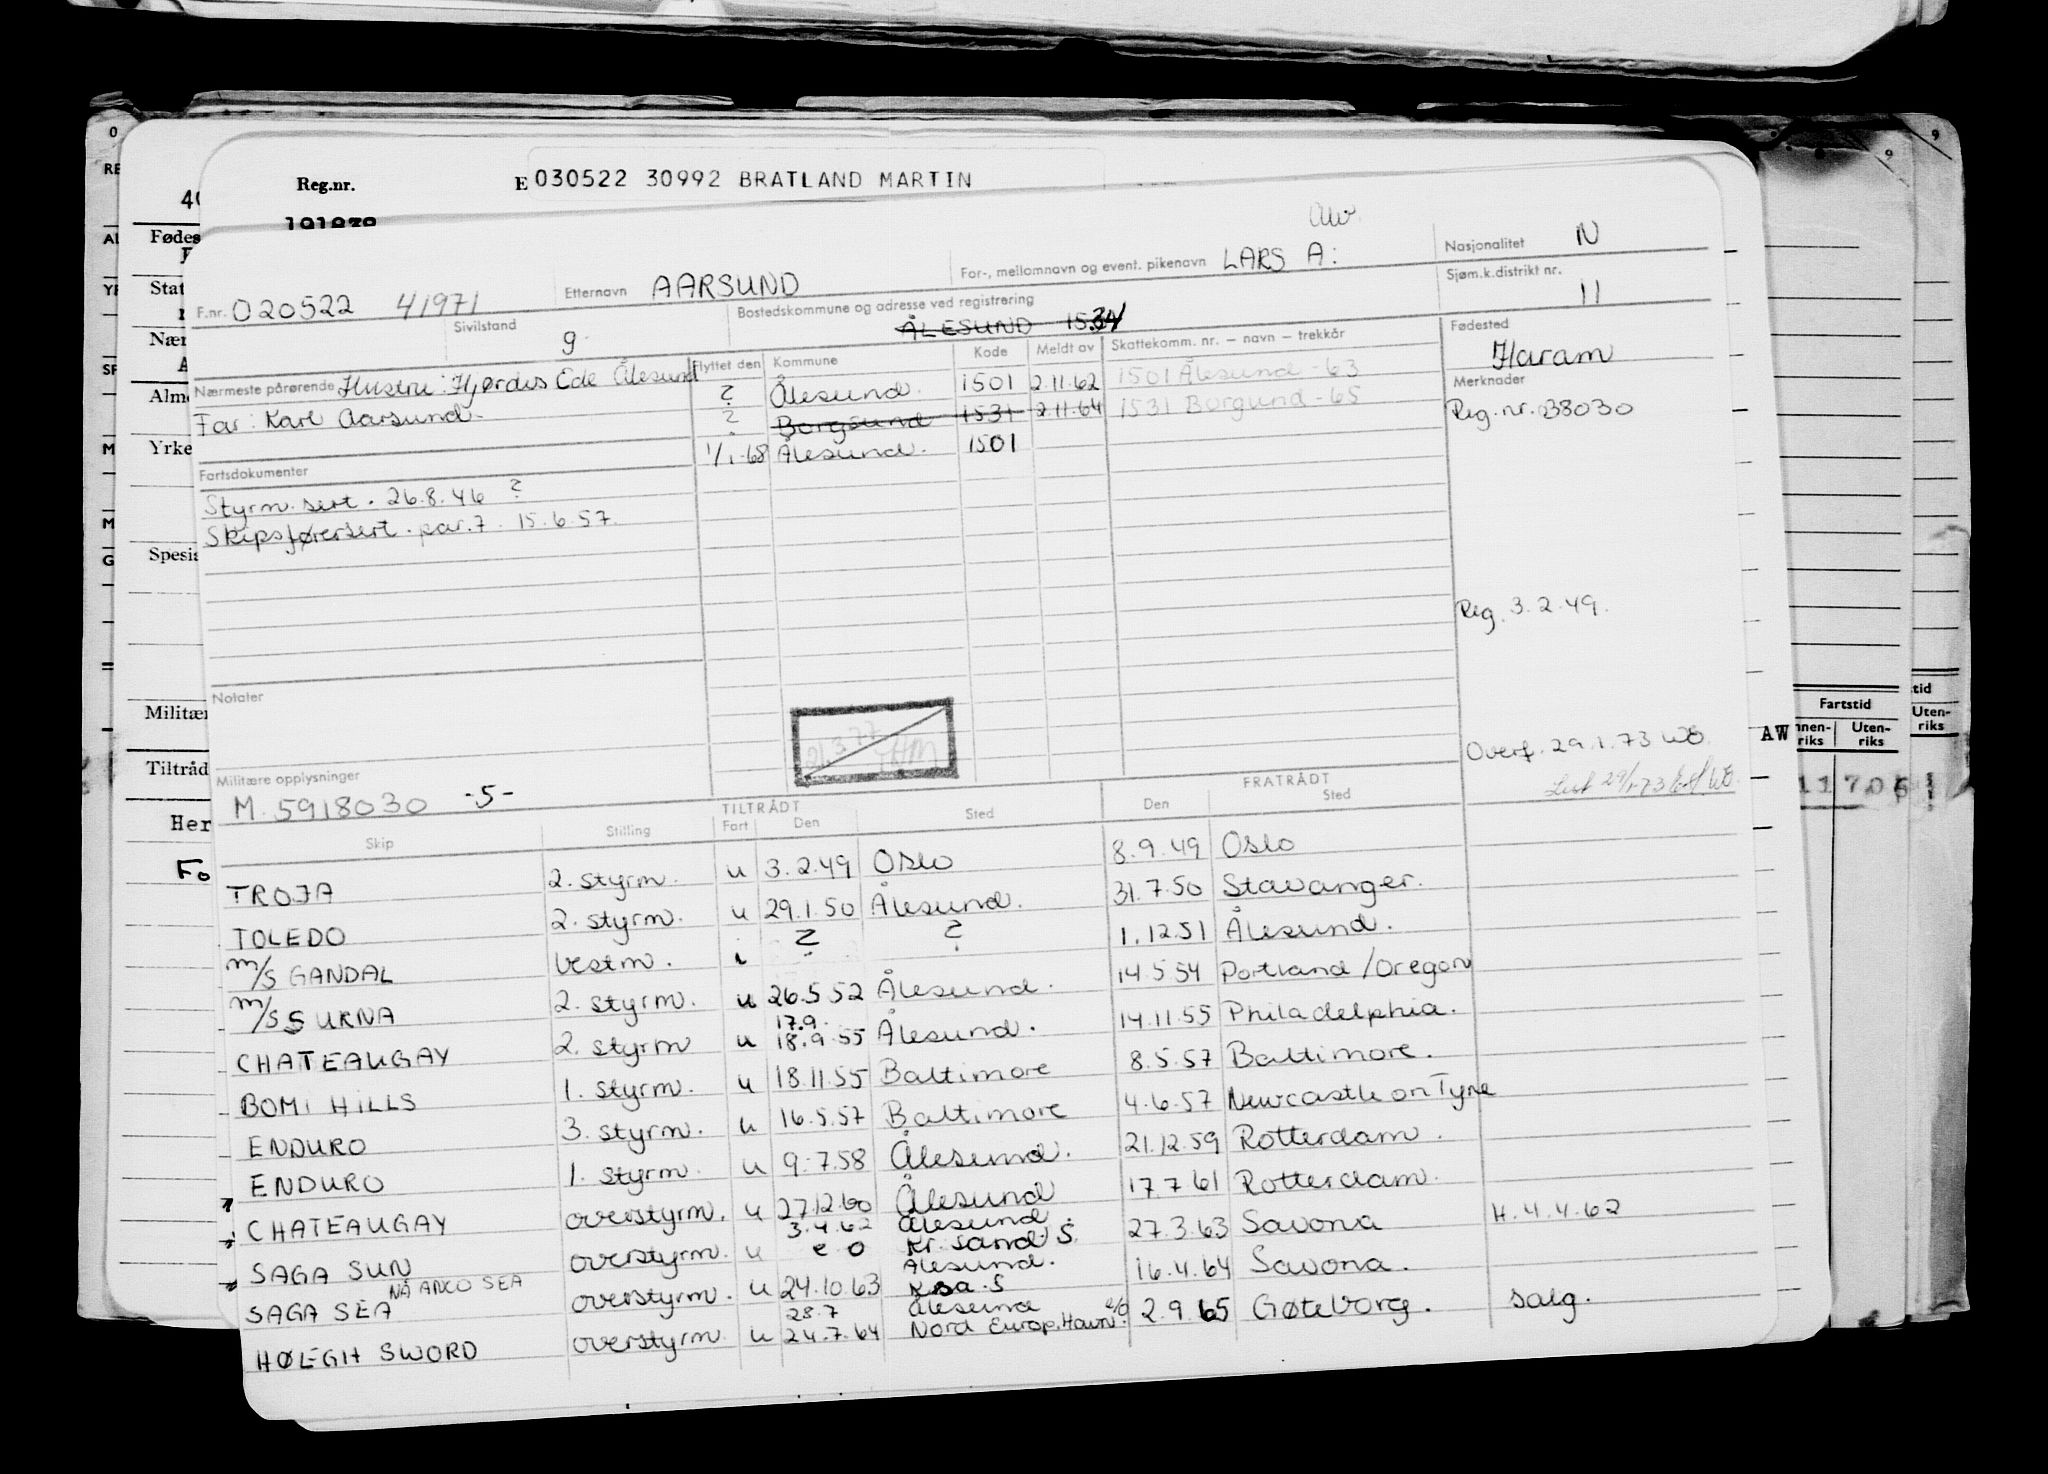 Reg.nr. E 030522 30992 BRATLAND MARTIN
191838
F.nr. 020522 41971 Etternavn AARSUND For-, mellomnavn og event. pikenavn LARS A: Nasjonalitet N
Sivilstand g Bostedskommune og adresse ved registrering ÅLESUND 1534 Sjøm.k.distrikt nr. 11
Nærmeste pårørende Hustru: Hjørdis Ede Ålesund
Far: Karl Aarsund
Flyttet den Kommune Kode Meldt av Skattekomm. nr. – navn – trekkår
? Ålesund. 1501 2.11.62 1501 Ålesund - 63
? Borgund 1531 2.11.64 1531 Borgund - 65
1/1-68 Ålesund. 1501
Fødested
Haram
Merknader
Reg. nr. 038030
Reg. 3.2.49.
Overf. 29.1.73 WB
Fartsdokumenter
Styrm. sert. 26.8.46 ?
Skipsførersert. par. 7. 15.6.57.
Notater
21.3.77
Militære opplysninger
M. 5918030 -5-
TILTRÅDT FRATRÅDT
Skip Stilling Fart Den Sted Den Sted
TROJA 2. styrm. u 3.2.49 Oslo 8.9.49 Oslo
TOLEDO 2. styrm. u 29.1.50 Ålesund. 31.7.50 Stavanger.
m/s GANDAL bestm. i ? ? 1.12.51 Ålesund.
m/s SURNA 2. styrm. u 26.5.52 Ålesund. 14.5.54 Portland/Oregon
17.9.
CHATEAUGAY 2. styrm u 18.9.55 Ålesund. 14.11.55 Philadelphia.
BOMI HILLS 1. styrm. u 18.11.55 Baltimore 8.5.57 Baltimore.
ENDURO 3. styrm. u 16.5.57 Baltimore 4.6.57 Newcastle on Tyne
ENDURO 1. styrm. u 9.7.58 Ålesund. 21.12.59 Rotterdam.
CHATEAUGAY overstyrm. u 27.12.60 Ålesund 17.7.61 Rotterdam.
3.4.62 Ålesund.
SAGA SUN overstyrm. u e o Kr. sand S. 27.3.63 Savona H. 4.4.62
NÅ ANCO SEA Ålesund.
SAGA SEA overstyrm. u 24.10.63 K.sa. S 16.4.64 Savona.
28.7 Ålesund
HØEGH SWORD overstyrm. u 24.7.64 Nord Europ. Havn. e/o 2.9.65 Gøteborg. salg.
Fødes
Stat
Nær
Alm
Yrke
Spesis
Militær
Tiltråd
Her
Fo
AW
Fartstid
Innenriks Utenriks
11705